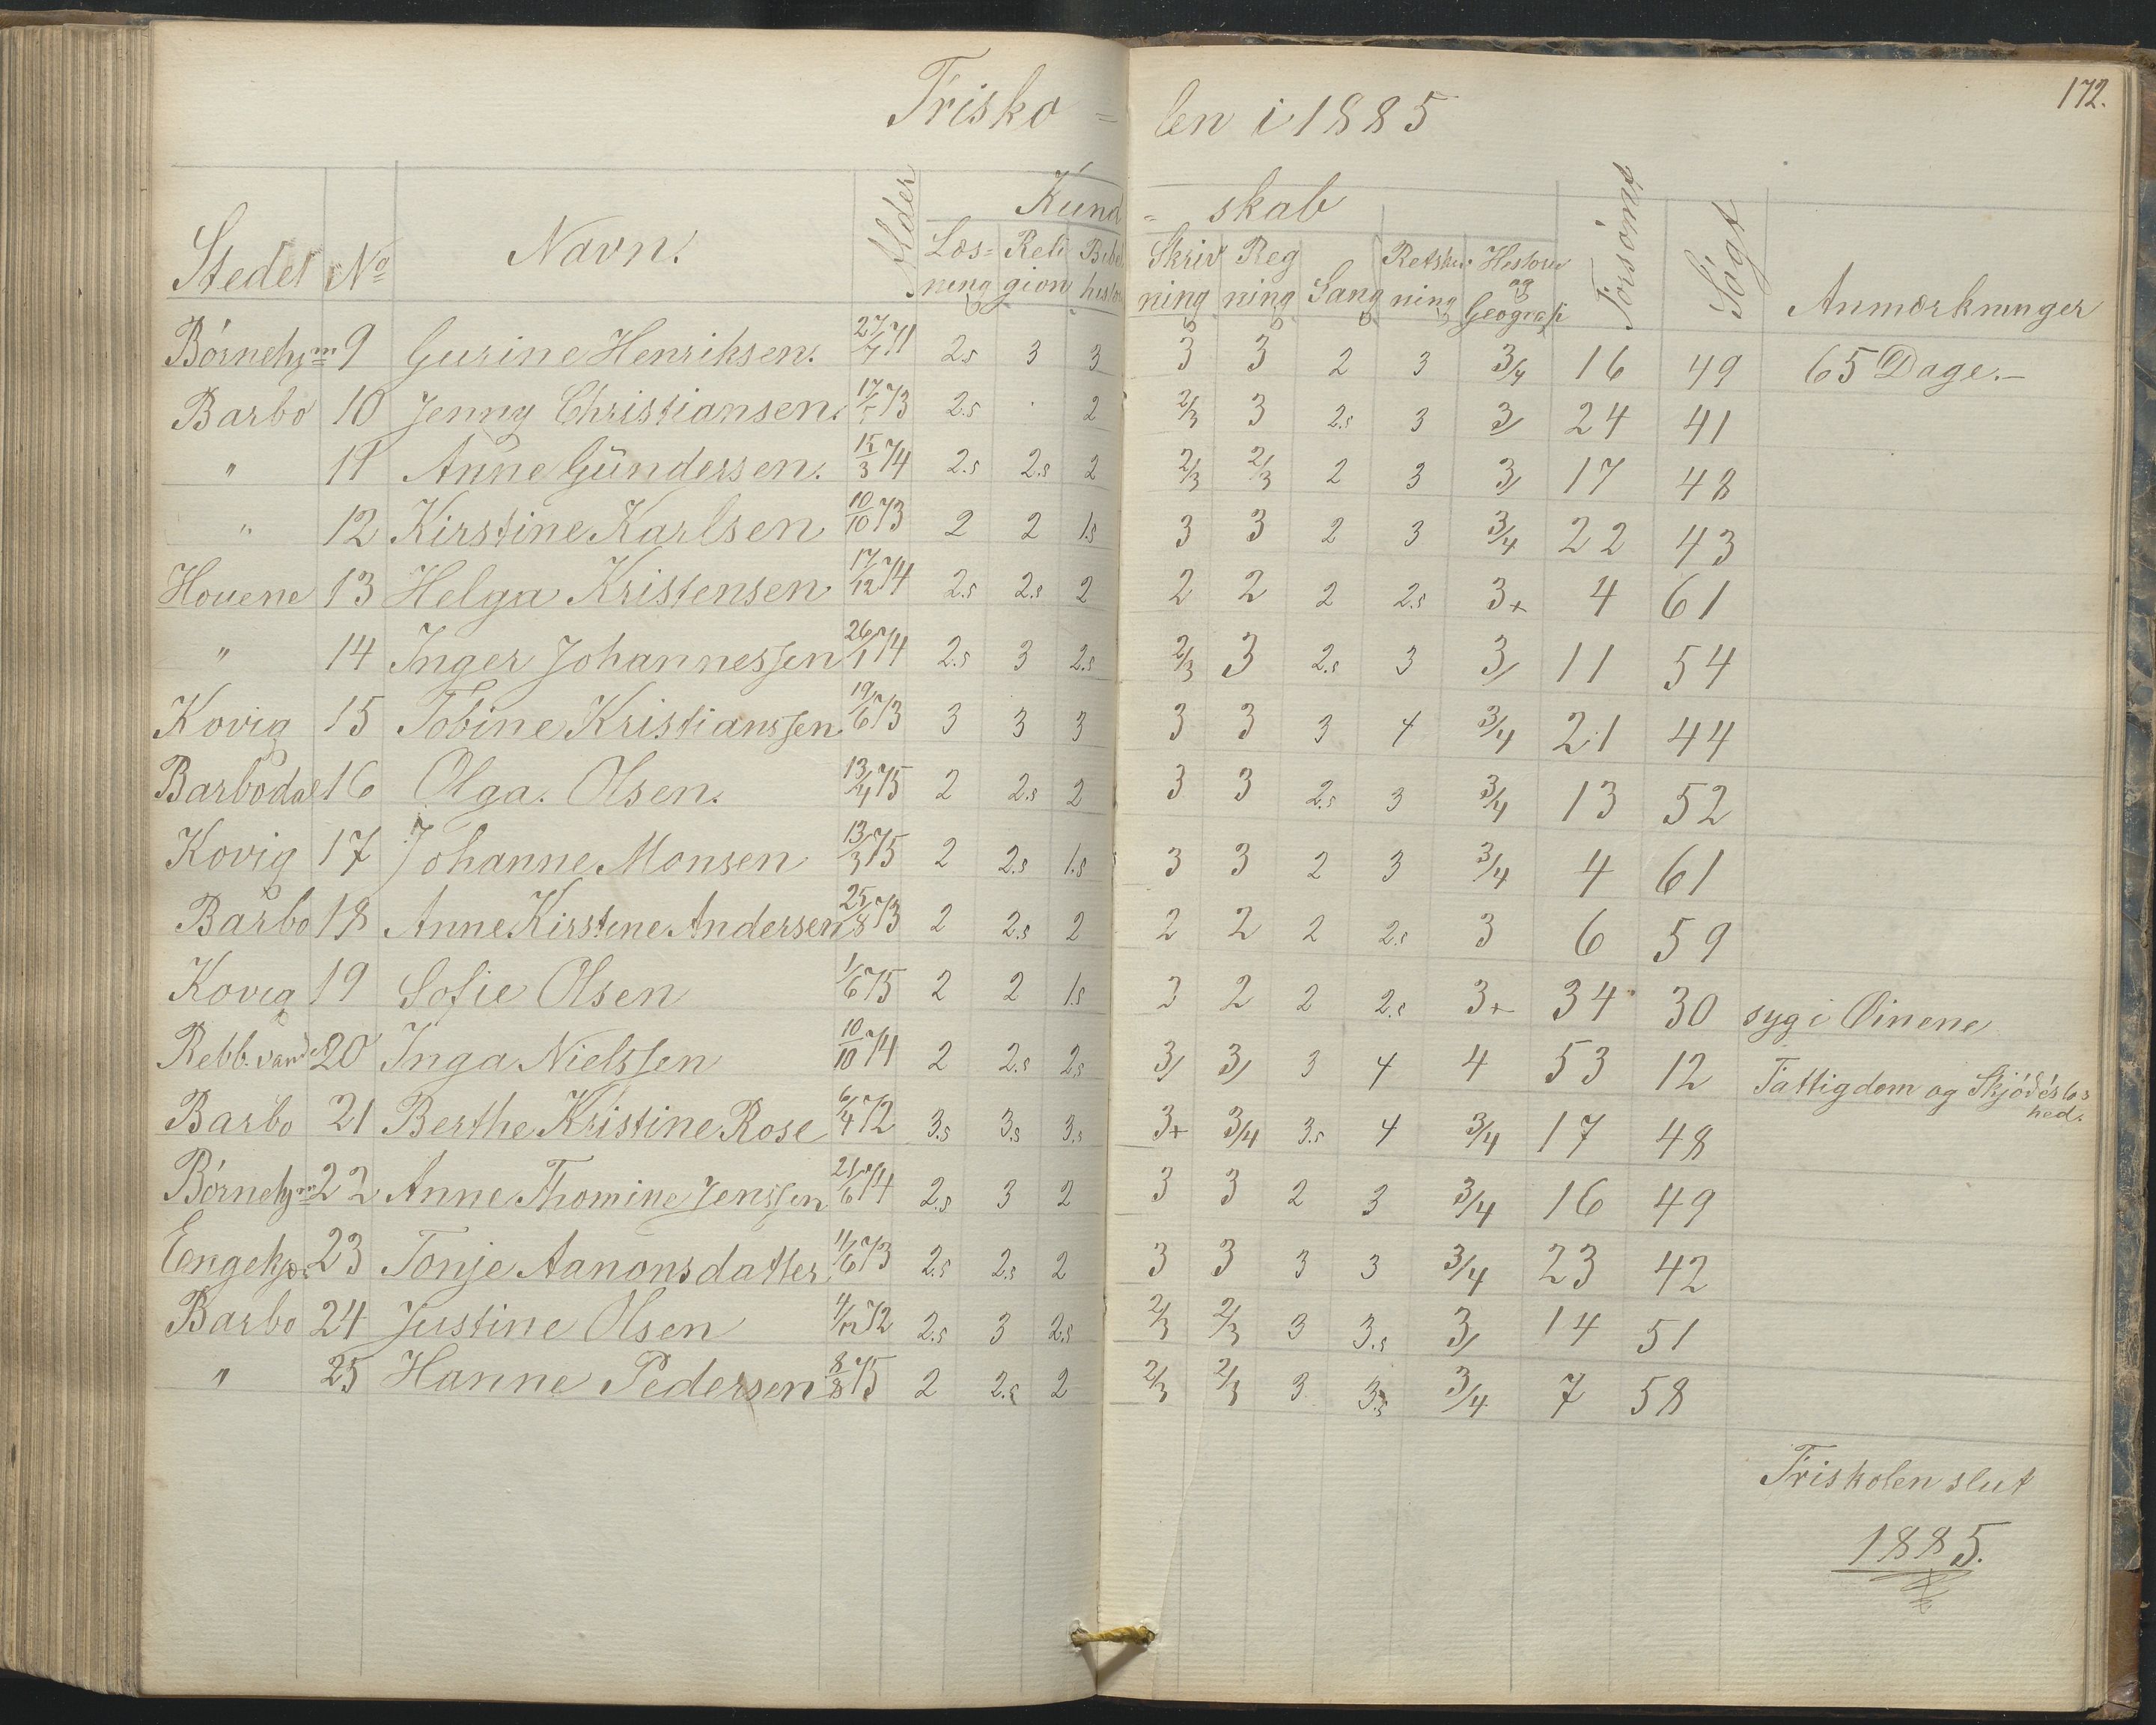 172.
Frisko = len i 1885
Stedet No Navn. Alder Kund = skab Forsömt Sögt Anmærkninger
Læs= ning Reli gion Bibel histor Skriv ning Reg ning Sang Retskr ning Historie og Geografi
Börnehjm 9 Gurine Henriksen. 27/7 71 2.5 3 3 3 3 2 3 3/4 16 49 65 Dage.-
Barbo 10 Jenny Christiansen. 17/5 73 2.5 . 2 2/3 3 2.5 3 3/ 24 41
" 11 Anne Gundersen. 15/3 74 2.5 2.5 2 2/3 2/3 2 3 3/ 17 48
" 12 Kirstine Karlsen 10/10 73 2 2 1.5 3 3 2 3 3/4 22 43
Houene 13 Helga Kristensen 17/12 74 2.5 2.5 2 2 2 2 2.5 3+ 4 61
" 14 Inger Johannessen 26/1 74 2.5 3 2.5 2/3 3 2.5 3 3/ 11 54
Kovig 15 Tobine Kristianssen 19/6 73 3 3 3 3 3 3 4 3/4 21 44
Barbodal 16 Olga. Olsen. 13/4 75 2 2.5 2 3 3 2.5 3 3/4 13 52
Kovig 17 Johanne Monsen 13/3 75 2 2.5 1.5 3 3 2 3 3/4 4 61
Barbo 18 Anne Kirstine Andersen 25/8 73 2 2.5 2 2 2 2 2.5 3 6 59
Kovig 19 Sofie Olsen 1/6 75 2 2 1.5 3 2 2 2.5 3+ 34 30 syg i Öinene
Rebb. vand 20 Inga Nielssen 10/10 74 2 2.5 2.5 3/ 3/ 3 4 4 53 12 Fattigdom og Skjödeslös
hed.
Barbo 21 Berthe Kristine Rose 6/4 72 3.5 3.5 3.5 3+ 3/4 3.5 4 3/4 17 48
Börnehjm 22 Anne Thomine Jenssen 21/6 74 2.5 3 2 3 3 2 3 3/4 16 49
Engekjær 23 Tonje Aanonsdatter 11/6 73 2.5 2.5 2 3 3 3 3 3/4 23 42
Barbo 24 Justine Olsen 4/12 72 2.5 3 2.5 2/3 2/3 3 3.5 3/ 14 51
" 25 Hanne Pedersen 8/8 75 2 2.5 2 2/3 2/3 3 3.5 3/4 7 58
Friskolen slut
1885.